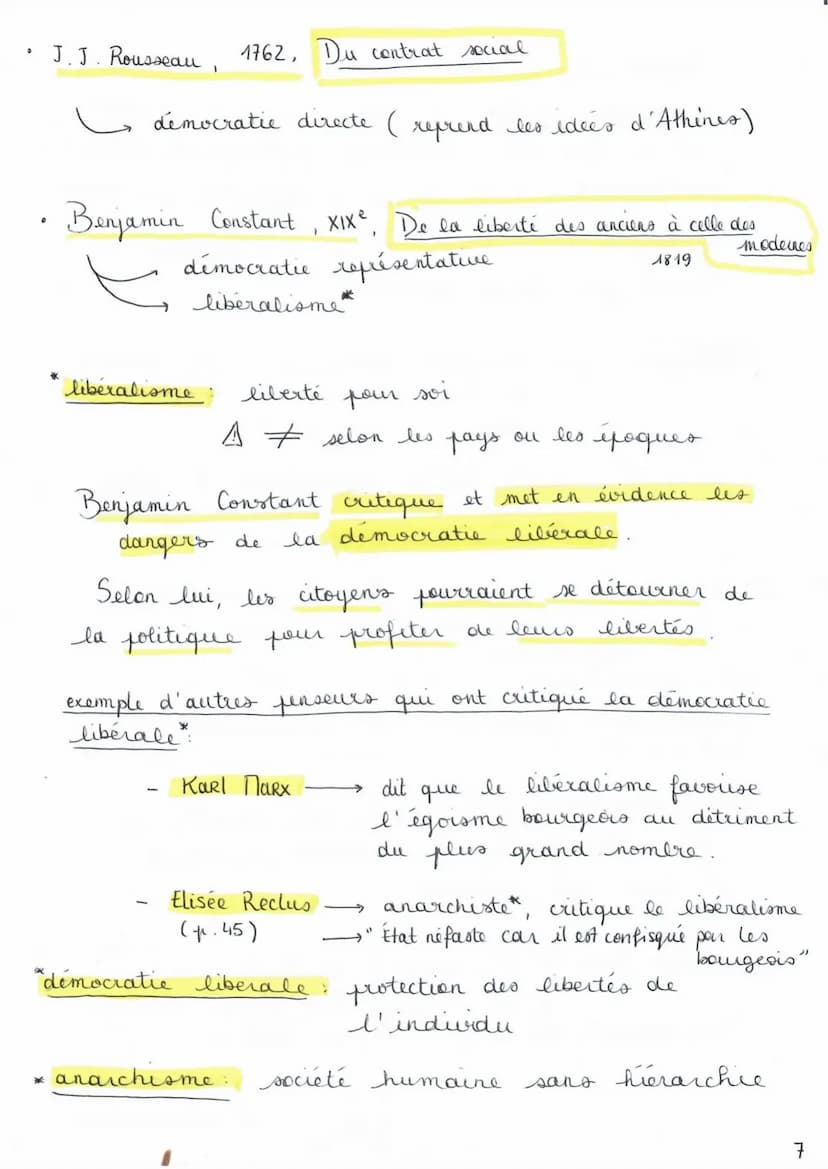 • J.J. Rousseau, 1762, Du contrat social
↳ démocratie directe (reprend les idées d'Athènes)
• Benjamin Constant, XIXe, De la liberté des anciens à celle des
modernes
démocratie représentative 1819
libéralisme*
* libéralisme : liberté pour soi
⚠ ≠ selon les pays ou les époques
Benjamin Constant critique et met en évidence les
dangers de la démocratie libérale.
Selon lui, les citoyens pourraient se détourner de
la politique pour profiter de leurs libertés.
exemple d'autres penseurs qui ont critiqué la démocratie
libérale* :
- Karl Marx → dit que le libéralisme favorise
l'égoisme bourgeois au détriment
du plus grand nombre.
- Elisée Reclus → anarchiste*, critique le libéralisme
(p.45) → "État néfaste car il est confisqué par les
bourgeois"
*démocratie liberale : protection des libertés de
l'individu
* anarchisme : société humaine sans hiérarchie
7